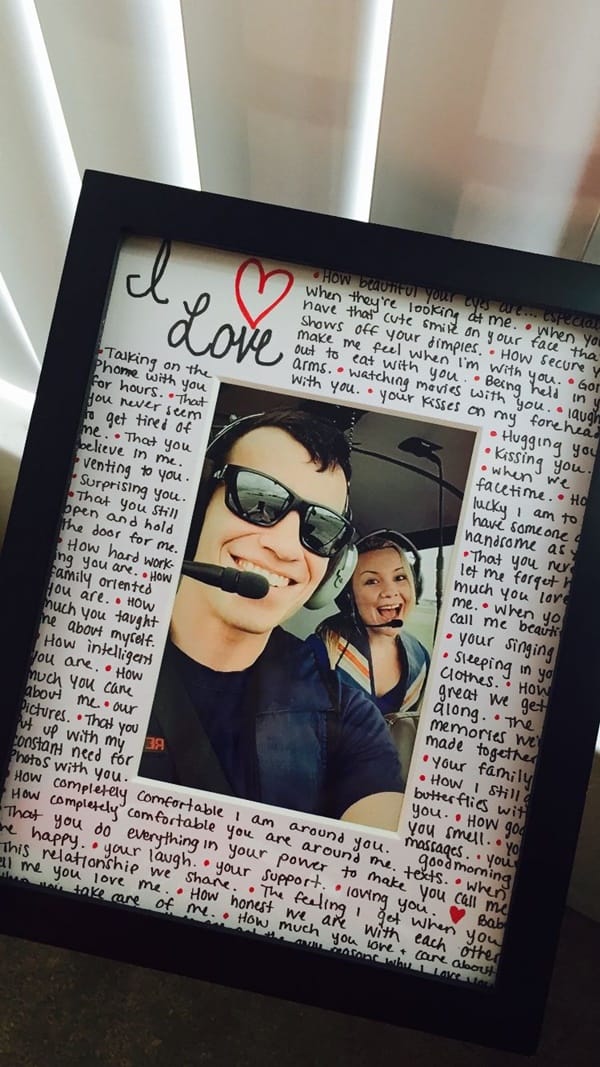 I
Love
How beautiful your eyes are... especial
when they're looking at me. • When you
have that cute smile on your face tha
shows off your dimples. • How secure y
make me feel when I'm with you. • Goi
out to eat with you. • Being held in y
arms. • watching movies with you. • laugh
with you. • your kisses on my forehead
• Talking on the
phone with you
for hours. • That
you never seem
to get tired of
me. • That you
believe in me.
• venting to you.
• Surprising you.
• That you still
open and hold
the door for me.
• How hard work-
ing you are. • How
family oriented
you are. • How
much you taught
me about myself.
• How intelligent
you are. • How
much you care
about me. • our
pictures. • That you
put up with my
constant need for
photos with you.
• Hugging you
• Kissing you.
• when we
facetime. • Ho
lucky I am to
have someone
handsome as
• That you nev
let me forget h
much you love
me. • when yo
call me beauti
• your singing
• sleeping in yo
clothes. • How
great we get
along. • The
memories we'
made together
• your family
• How I still g
butterflies wit
you. • How goo
you smell. • Yo
massages. • you
goodmorning
texts. • when
you call me
♥ Bab
How completely comfortable I am around you.
How completely comfortable you are around me.
That you do everything in your power to make
me happy. • your laugh. • your support. • loving you.
This relationship we share. • The feeling I get when you
tell me you love me. • How honest we are with each other
when you take care of me. • How much you love + care about
reasons why I love you